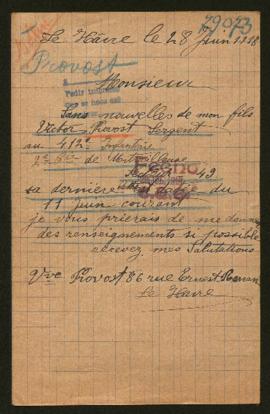 29073
Le Havre le 28 Juin 1918
Provost
Monsieur
Sans nouvelles de mon fils
Victor Provost Sergent
au 412e Infanterie
2e de Mitrailleuse
49
sa dernière du
11 Juin courant
je vous prierais de me donner
des renseignements si possible
recevez mes Salutations
Vve Provost 86 rue Ernest Renan
Le Havre